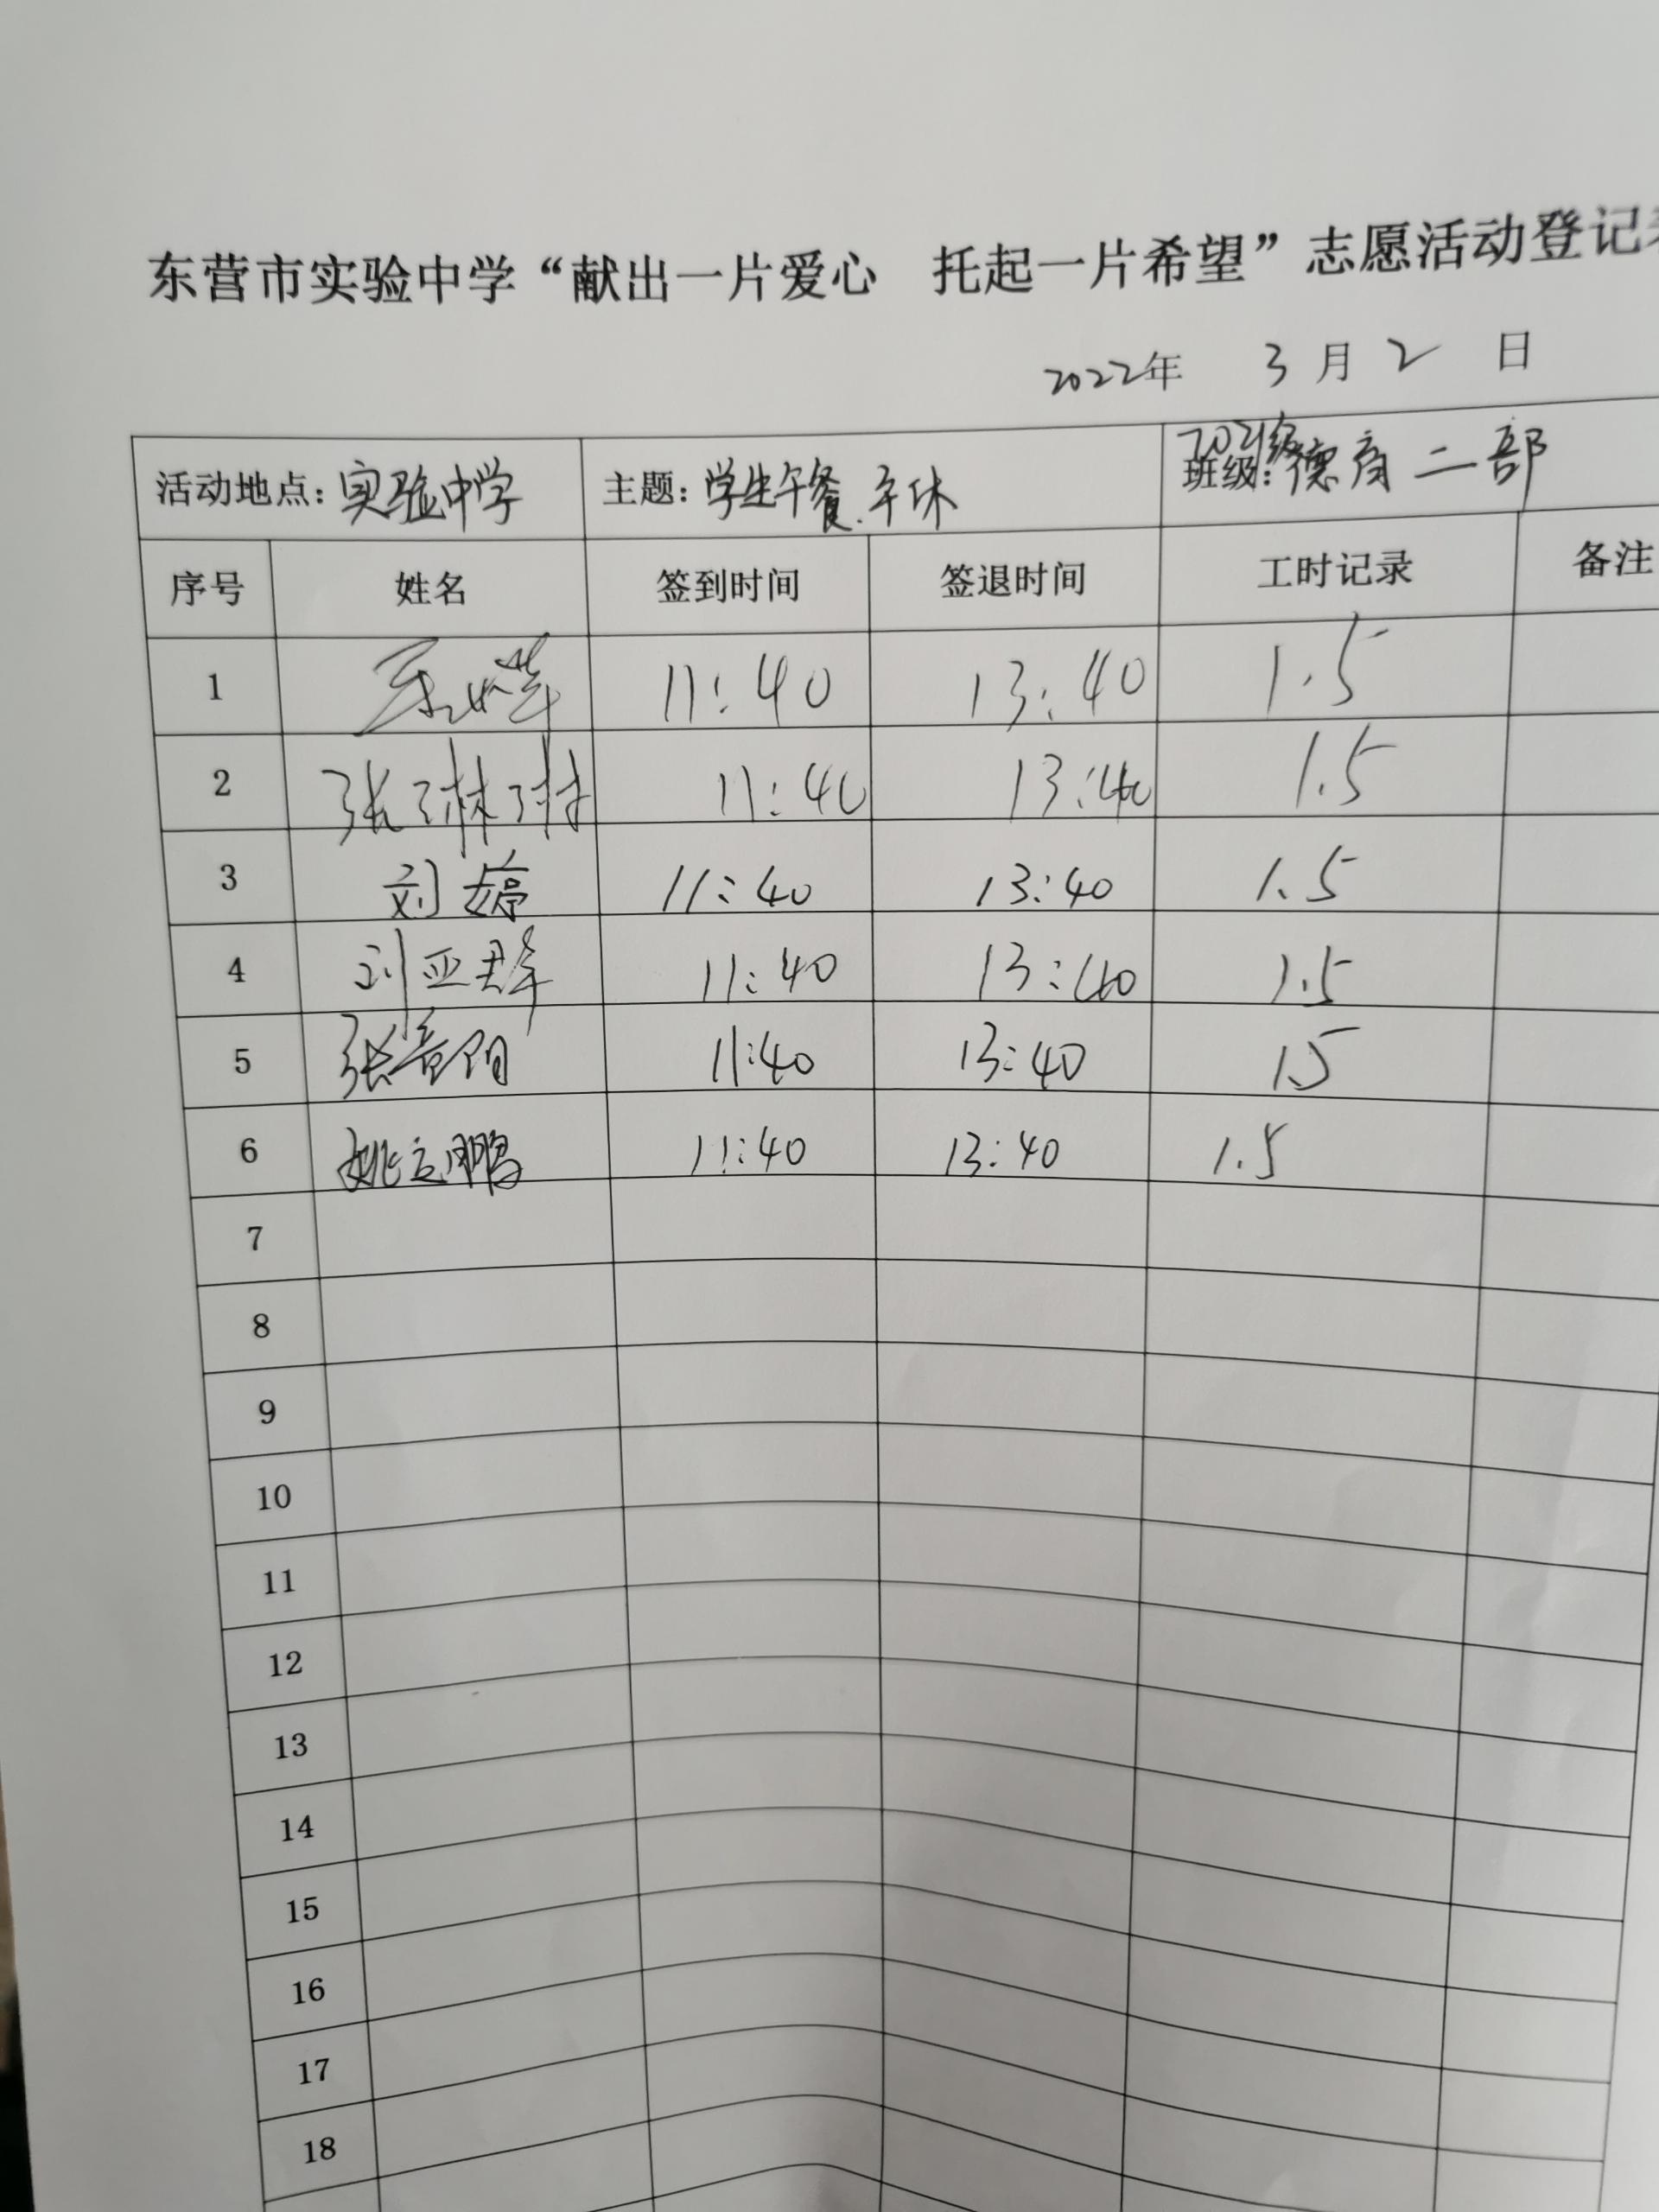 东营市实验中学“献出一片爱心 托起一片希望”志愿活动登记
2022年 3月2日
活动地点：实验中学 主题：学生午餐.午休 2021级 班级：德育二部
序号 姓名 签到时间 签退时间 工时记录 备注
1 11:40 13:40 1.5
2 张琳琳 11:40 13:40 1.5
3 刘婷 11:40 13:40 1.5
4 刘亚群 11:40 13:40 1.5
5 张 11:40 13:40 1.5
6 姚 鹏 11:40 13:40 1.5
7
8
9
10
11
12
13
14
15
16
17
18